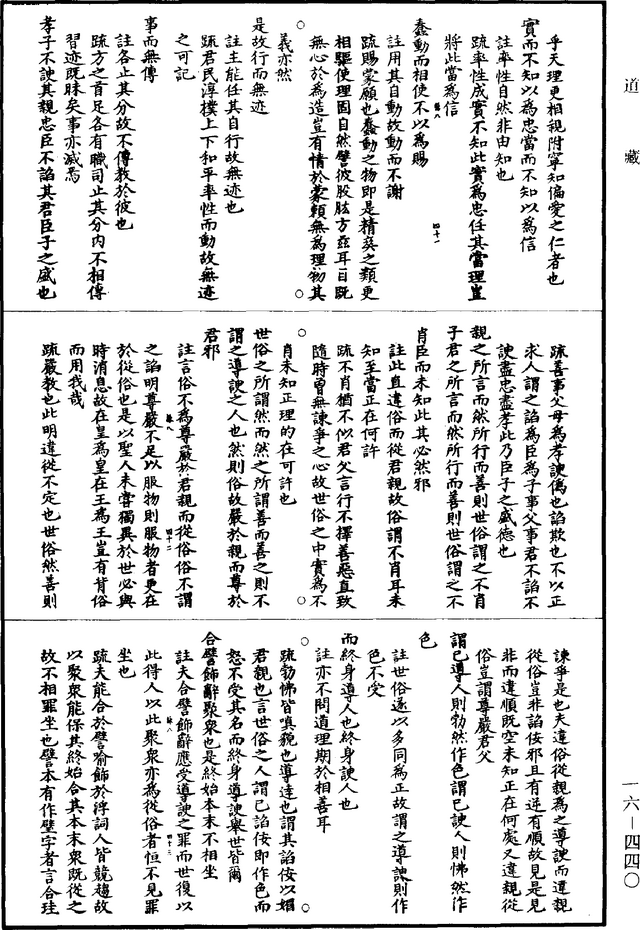 道藏
乎天理更相親附寧知偏愛之仁者也
實而不知以為忠當而不知以為信
註率性自然非由知也
疏率性成實不知此實為忠任其當理豈
將此當為信
蠢動而相使不以為賜
註用其自動故動而不謝
疏賜蒙願也蠢動之物即是精爽之類更
相驅使理固自然譬彼股肱方茲耳目既
無心於為造豈有情於蒙賴無為理物其
義亦然
是故行而無迹
註主能任其自行故無迹也
疏君民淳樸上下和平率性而動故無迹
之可記
事而無傳
註各止其分故不傳教於彼也
疏方之首足各有職司止其分內不相傳
習迹既昧矣事亦滅焉
孝子不諛其親忠臣不諂其君臣子之盛也
疏善事父母為孝諛偽也諂欺也不以正
求人謂之諂為臣為子事父事君不諂不
諛盡忠盡孝此乃臣子之盛德也
親之所言而然所行而善則世俗謂之不肖
子君之所言而然所行而善則世俗謂之不
肖臣而未知此其必然邪
註此直違俗而從君親故俗謂不肖耳未
知至當正在何許
疏不肖猶不似君父言行不擇善惡直致
隨時曾無諫爭之心故世俗之中實為不
肖未知正理的在可許也
世俗之所謂然而然之所謂善而善之則不
謂之導諛之人也然則俗故嚴於親而尊於
君邪
註言俗不為尊嚴於君親而從俗俗不謂
之諂明尊嚴不足以服物則服物者更在
於從俗也是以聖人未嘗獨異於世必與
時消息故在皇為皇在王為王豈有背俗
而用我哉
疏嚴敬也此明違從不定也世俗然善則
諫爭是也夫違俗從親為之導諛而違親
從俗豈非諂佞邪且有逆有順故見是見
非而違順既空未知正在何處又違親從
俗豈謂尊嚴君父
謂己導人則勃然作色謂己諛人則怫然作
色
註世俗遂以多同為正故謂之導諛則作
色不受
而終身導人也終身諛人也
註亦不問道理期於相善耳
疏勃怫皆嗔貌也導達也謂其諂佞以媚
君親也言世俗之人謂己諂佞即作色而
怒不受其名而終身導諛舉世皆爾
合譬飾辭聚眾也是終始本末不相坐
註夫合譬飾辭應受導諛之罪而世復以
此得人以此聚眾亦為從俗者恒不見罪
坐也
疏夫能合於譬喻飾於浮詞人皆競趨故
以聚眾能保其終始合其本末眾既從之
故不相罪坐也譬本有作璧字者言合珪
一六—四四〇